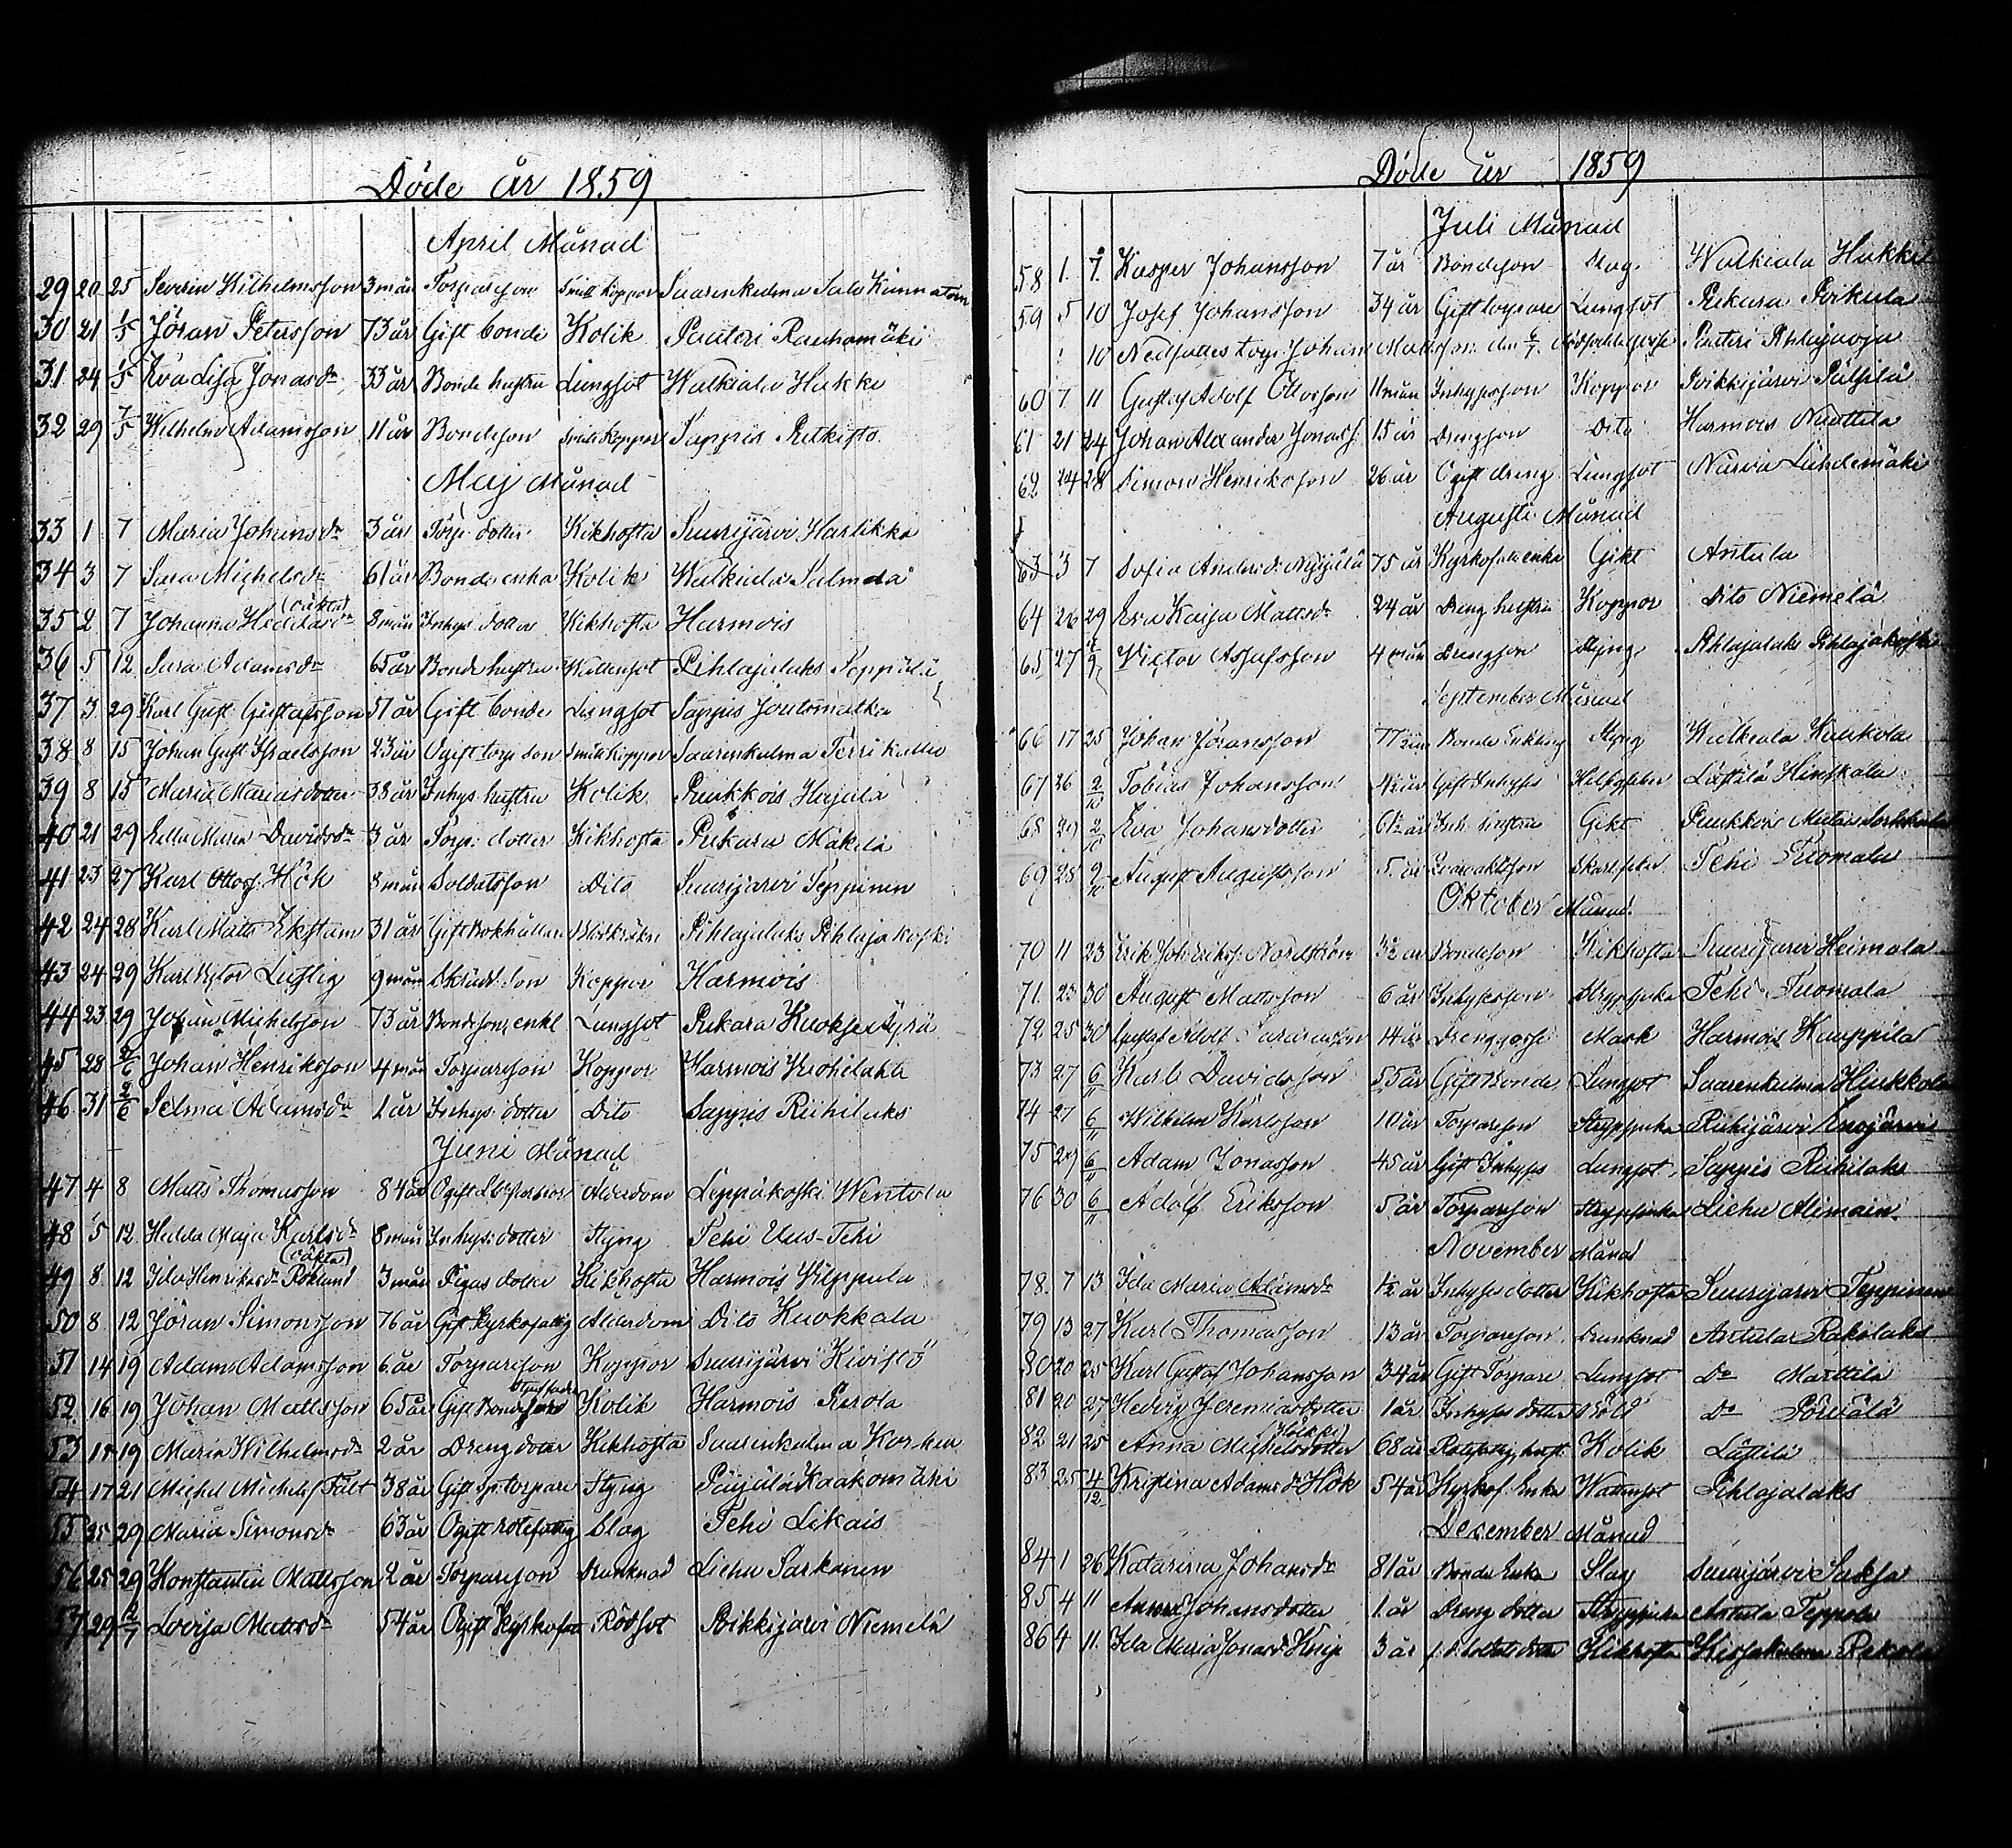 Döde år 1859
April Månad
29 20 25 Severin Wilhelmsson 3 mån Torparson Små koppor Saarenkulma Salo
30 21 1/5 Jöran Petersson 73 år Gift bonde Kolik Pauteri Rauhamäki
31 24 1/5 Eva Lisa Jonasdr 33 år Bonde hustru Lungsot Walkiala Hukki
32 29 7/5 Wilhelm Adamsson 11 år Bondeson små koppor Sappis
Maj Månad
33 1 7 Maria Johansdr 3 år Torp. dotter Kikhosta Suurijärvi Harlikka
34 3 7 Sara Michelsdr 61 år Bonde enka Kolik Walkiala Salmela
35 2 7 Johanna Heddasdr (oäkta) 8 mån Inhys. dotter Kikhosta Harmois
36 5 12 Sara Adamsdr 65 år Bonde hustru Wattensot Pihlajalaks Seppälä
37 3 29 Karl Gust. Gustafsson 57 år Gift bonde Lungsot Sappis
38 8 15 Johan Gust. Israelsson 23 år Ogift torp. son små koppor Saarenkulma Terrikallio
39 8 15 Maria Mariasdotter 38 år Inhys. hustru Kolik Puukkois Hejala
40 21 29 Lilla Maria Davidsdr 3 år Torp. dotter Kikhosta Pukara Mäkelä
41 23 27 Karl Ottos. Hök 8 mån Soldatsson Dito Suurijärvi Seppinen
42 24 28 Karl Matts Ekstam 31 år Gift Bokhållare Pihlajalaks Pihlajakoski
43 24 29 Karl Victor Lustig 9 mån son Koppor Harmois
44 23 29 Johan Michelsson 73 år Bondesons enkl. Lungsot Pukara
45 28 2/6 Johan Henriksson 4 mån Torparson Koppor Harmois Wuohilahti
46 31 2/6 Selma Adamsdr 1 år Inhys. dotter Dito Sappis Riihilaks
Juni Månad
47 4 8 Matts Thomasson 84 år Ogift Ålderdom Leppäkoski Wentola
48 5 12 Hedda Maja Karlsdr 8 mån Inhys. dotter Styng Tehi Uus-Tehi
49 8 12 Ida Henriksdr Röklund (oäkta) 3 mån Pigas dotter Kikhosta Harmois Wippula
50 8 12 Jöran Simonsson 76 år Gift Kyrkofattig Ålderdom Dito Kuokkala
51 14 19 Adam Adamsson 6 år Torparson Koppor Suurijärvi Kivistö
52 16 19 Johan Mattsson 65 år Gift Kolik Harmois Perola
53 18 19 Maria Wilhelmsdr 2 år Dreng dotter Kikhosta Saarenkulma
54 17 21 Michel Michels. Fält 38 år Gift Sp. torpare Styng Päijälä Kaakomäki
55 25 29 Maria Simonsdr 63 år Ogift rotefattig Slag Tehi Likais
56 25 29 Konstantin Mattsson 2 år Torparson Drunknad Liehu Sarkanen
57 29 2/7 Lovisa Mattsdr 54 år Ogift Kyrkofatt. Rödsot Poikkijärvi Niemelä
Döde År 1859
Juli Månad
58 1 7 Kasper Johansson 7 år Bondeson Slag Walkiala Hukki
59 5 10 Josef Johansson 34 år Gift torpare Lungsot Pukara Poikula
10 Nedsattes torp. Johan Mattsson den 6/7 dödfödda gosse Pauteri Pihlajaoja
60 7 11 Gustaf Adolf Ottosson 11 mån Inhysesson Koppor Poikkijärvi
61 21 24 Johan Alexander Jonass. 15 år Drengson Dito Harmois Nuottila
62 24 28 Simon Henriksson 26 år Ogift dreng Lungsot Narva Lahdemäki
Augusti Månad
63 3 7 Sofia Andersdr 75 år Kyrkofatt. enka Gikt Antula
64 26 29 Eva Kaisa Mattsdr 24 år Dreng hustru Koppor Dito Niemelä
65 27 4/9 Victor Assafsson 4 mån Drengson Styng Pihlajalaks Pihlajakoski
September Månad
66 17 25 Johan Jöransson 77 år Bonde Enkling Styng Walkiala Kuukola
67 26 2/10 Tobias Johansson 42 år Gift Inhyses Lästilä
68 29 2/10 Eva Johansdotter 61½ år Inh. hustru Gikt Puukkois
69 28 2/10 August Augustsson 5 år Tehi Tuomala
Oktober Månad
70 11 23 Erik Joh. Eriks. Nordström 3½ år Bondeson Kikhosta Suurijärvi Heimala
71 23 30 August Mattsson 6 år Inhysesson Strypsjuka Tehi Tuomala
72 25 30 Gustaf Adolf 14 år Drenggosse Mask Harmois Kauppila
73 27 6/11 Karl Davidsson 55 år Gift Bonde Lungsot Saarenkulma Hiukkola
74 27 6/11 Wilhelm Karlsson 10 år Torparson Strypsjuka
75 29 6/11 Adam Jonasson 45 år Gift Inhyses Lungsot Sappis Riihilaks
76 30 6/11 Adolf Eriksson 5 år Torparson Strypsjuka Liehu Alimain.
November Månad
78 7 13 Ida Maria Adamsdr ½ år Inhyses dotter Kikhosta Suurijärvi Seppinen
79 13 27 Karl Thomasson 13 år Torparson Drunknad Antula Pakolaks
80 20 25 Karl Gustaf Johansson 34 år Gift Torpare Lungsot Do Marttila
81 20 27 Hedvig Jeremiasdotter 1 år Inhyses dotter Do
82 21 25 Anna Michelsdotter 68 år Kolik Lästilä
83 25 4/12 Kristina Adamsdr Hök 54 år Kyrkof. Enka Wattusot Pihlajalaks
December Månad
84 1 26 Katarina Johansdr 81 år Bonde Enka Slag Suurijärvi
85 4 11 Anna Johansdotter 1 år Dreng dotter Strypsjuka Antula Seppola
86 4 11 Ida Maria Jonasdr Knip 3 år Kikhosta Rakola